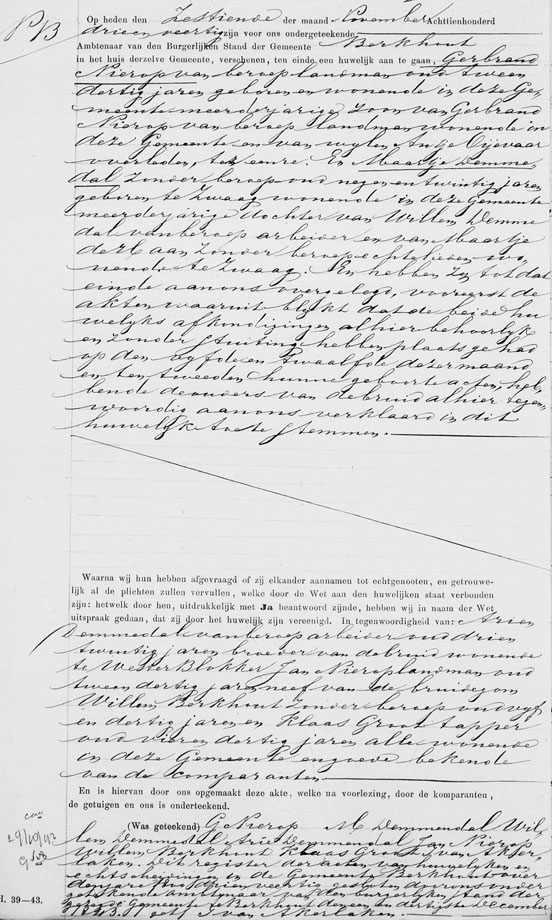 Op heden den Zestiende der maand November Achttienhonderd
drieenveertig zijn voor ons ondergeteekende
Ambtenaar van den Burgerlijken Stand der Gemeente Berkhout
in het huis derzelve Gemeente, verschenen, ten einde een huwelijk aan te gaan, Gerbrand
Nierop van beroep landman oud tween
dertig jaren geboren en wonende in deze Ge,
meente meerderjarige Zoon van Gerbrand
Nierop van beroep landman wonende in
deze Gemeente en van wylen Antje
overleden, ter eenre. En Maartje Demme,
dal Zonder beroep oud negen en twintig jaren
geboren te Zwaag wonende in deze Gemeente
meerderjarige dochter van Willem Demme
dal van beroep arbeider en van Maartje
de Haan Zonder beroep echtelieden wo
nende te Zwaag. En hebben Zy tot dat
einde aan ons overgelegd, vooreerst de
akten waaruit blykt dat de beide hu
welyks afkondigingen alhier behoorlyk
en Zonder Stuiting hebben plaats gehad
op den vyfde en twaalfde dezer maand
en ten tweeden hunne geboorte acten, heb
bende de ouders van de bruid alhier tegen
woordig aan ons verklaard in dit
huwelyk toe te Stemmen.
Waarna wij hun hebben afgevraagd of zij elkander aannamen tot echtgenooten, en getrouwe-
lijk al de plichten zullen vervullen, welke door de Wet aan den huwelijken staat verbonden
zijn: hetwelk door hen, uitdrukkelijk met Ja beantwoord zijnde, hebben wij in naam der Wet
uitspraak gedaan, dat zij door het huwelijk zijn vereenigd. In tegenwoordigheid van: Arien
Demmedal van beroep arbeider oud drien
twintig jaren broeder van de bruid wonende
te Westerblokker Jan Nierop landman oud
tween dertig jaren neef van de bruidegom
Willem Berkhout Zonder beroep oud vyf
en dertig jaren en Klaas Groot tapper
oud vier en dertig jaren alle wonende
in deze Gemeente en goede bekende
van de Comparanten
En is hiervan door ons opgemaakt deze akte, welke na voorlezing, door de komparanten,
de getuigen en ons is onderteekend.
(Was geteekend) G Nierop M Demmendal Wil,
lem Demmedal Arie Demmendal Jan Nierop
Willem Berkhout Klaas Groot J van Aker,
laken. Dit register der acten van huwelyken en
echtscheiding in de Gemeente Berkhout over
den jare
Gemeente Berkhout den een en dertigste December
J van Akerlaken
H. 39—43.